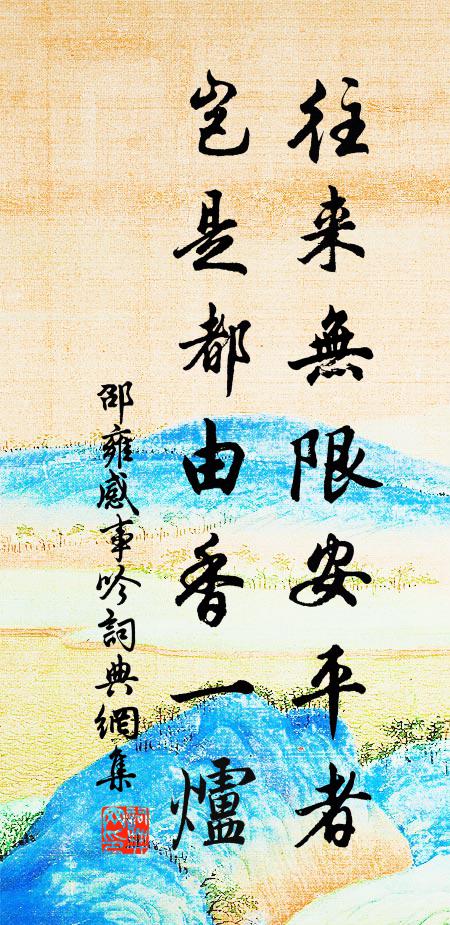 往来無限安平者
豈是都由香一爐
邵雍感事吟詞典網集